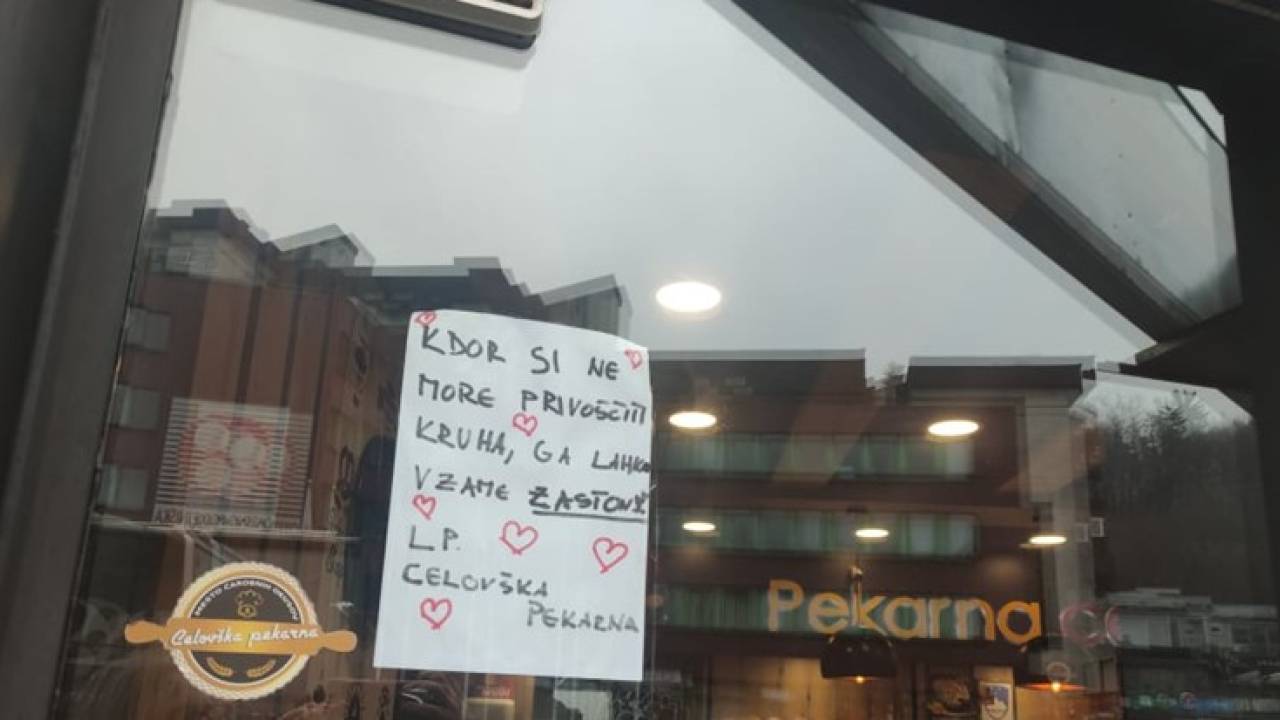 KDOR SI NE
MORE PRIVOŠČITI
KRUHA, GA LAHKO
VZAME ZASTONJ
LP.
CELOVŠKA
PEKARNA
MESTO ČAROBNIH OKUSOV
Celovška pekarna
Pekarna